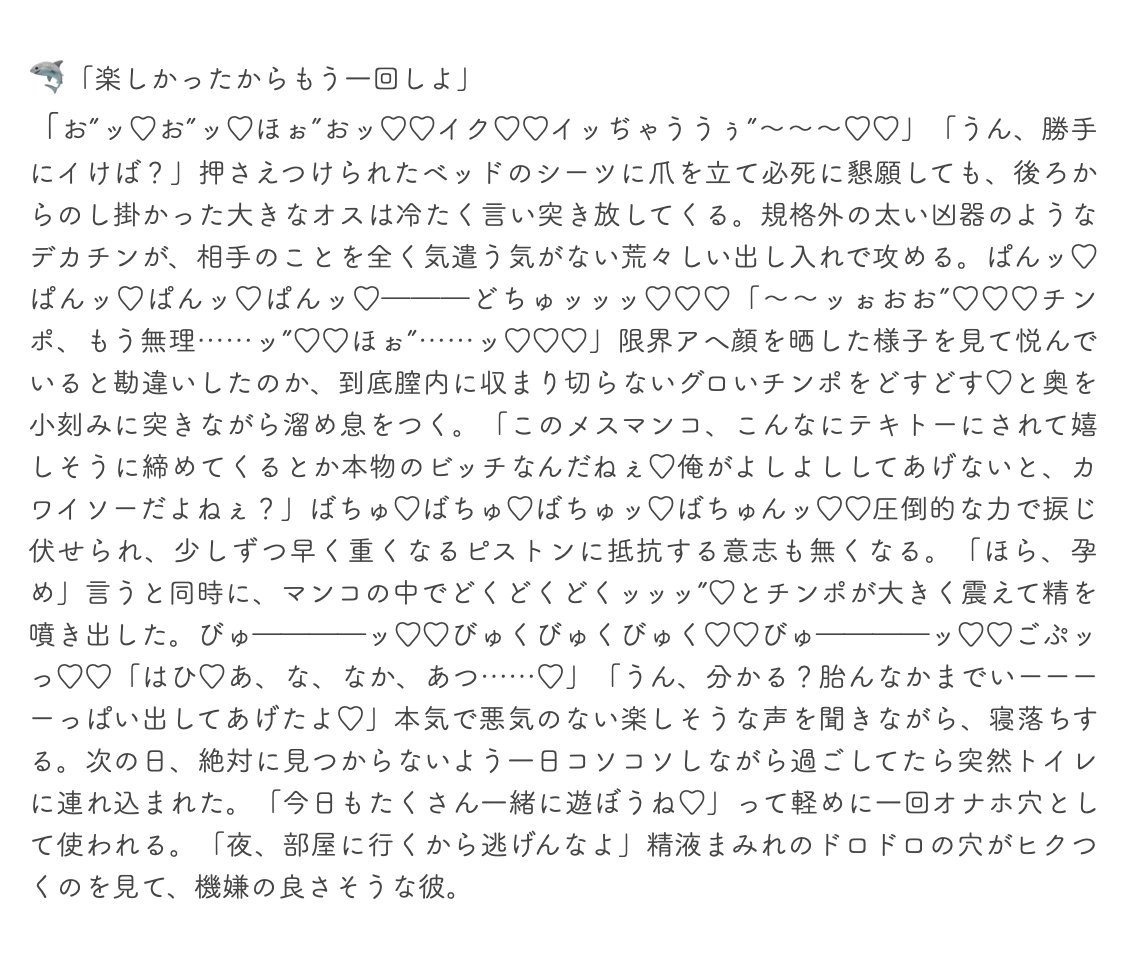 🦈「楽しかったからもう一回しよ」
「お″ッ♡お″ッ♡ほぉ″おッ♡♡イク♡♡イッぢゃううぅ″〜〜〜♡♡」「うん、勝手
にイけば？」押さえつけられたベッドのシーツに爪を立て必死に懇願しても、後ろか
らのし掛かった大きなオスは冷たく言い突き放してくる。規格外の太い凶器のような
デカチンが、相手のことを全く気遣う気がない荒々しい出し入れで攻める。ぱんッ♡
ぱんッ♡ぱんッ♡ぱんッ♡―――どちゅッッッ♡♡♡「〜〜ッぉおお″♡♡♡チン
ポ、もう無理……ッ″♡♡ほぉ″……ッ♡♡♡」限界アヘ顔を晒した様子を見て悦んで
いると勘違いしたのか、到底膣内に収まり切らないグロいチンポをどすどす♡と奥を
小刻みに突きながら溜め息をつく。「このメスマンコ、こんなにテキトーにされて嬉
しそうに締めてくるとか本物のビッチなんだねぇ♡俺がよしよししてあげないと、カ
ワイソーだよねぇ？」ばちゅ♡ばちゅ♡ばちゅッ♡ばちゅんッ♡♡圧倒的な力で捩じ
伏せられ、少しずつ早く重くなるピストンに抵抗する意志も無くなる。「ほら、孕
め」言うと同時に、マンコの中でどくどくどくッッッ″♡とチンポが大きく震えて精を
噴き出した。びゅ――――ッ♡♡びゅくびゅくびゅく♡♡びゅ――――ッ♡♡ごぷッ
っ♡♡「はひ♡あ、な、なか、あつ……♡」「うん、分かる？胎んなかまでいーーー
ーっぱい出してあげたよ♡」本気で悪気のない楽しそうな声を聞きながら、寝落ちす
る。次の日、絶対に見つからないよう一日コソコソしながら過ごしてたら突然トイレ
に連れ込まれた。「今日もたくさん一緒に遊ぼうね♡」って軽めに一回オナホ穴とし
て使われる。「夜、部屋に行くから逃げんなよ」精液まみれのドロドロの穴がヒクつ
くのを見て、機嫌の良さそうな彼。